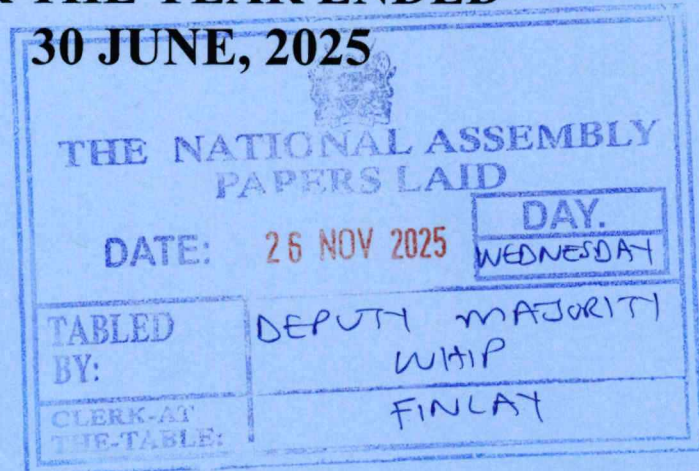 THE YEAR ENDED
30 JUNE, 2025
THE NATIONAL ASSEMBLY
PAPERS LAID
DATE: 26 NOV 2025 DAY.
WEDNESDAY
TABLED BY: DEPUTY MAJORITY WHIP
CLERK-AT THE-TABLE: FINLAY